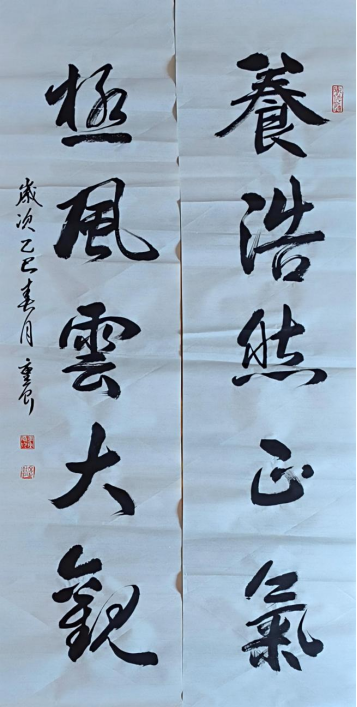 養浩然正氣
極風雲大觀
歲次乙巳春月